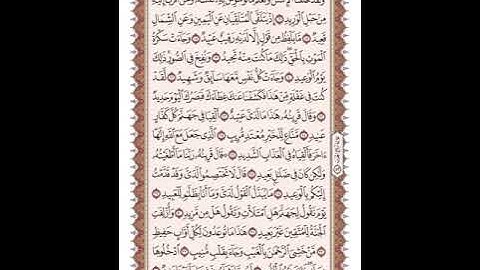 مِنْ حَبْلِ ٱلْوَرِيدِ ۝ إِذْ يَتَلَقَّى ٱلْمُتَلَقِّيَانِ عَنِ ٱلْيَمِينِ وَعَنِ ٱلشِّمَالِ
قَعِيدٌ ۝ مَّا يَلْفِظُ مِن قَوْلٍ إِلَّا لَدَيْهِ رَقِيبٌ عَتِيدٌ ۝ وَجَآءَتْ سَكْرَةُ
ٱلْمَوْتِ بِٱلْحَقِّ ذَٰلِكَ مَا كُنتَ مِنْهُ تَحِيدُ ۝ وَنُفِخَ فِى ٱلصُّورِ ذَٰلِكَ
يَوْمُ ٱلْوَعِيدِ ۝ وَجَآءَتْ كُلُّ نَفْسٍ مَّعَهَا سَآئِقٌ وَشَهِيدٌ ۝ لَّقَدْ
كُنتَ فِى غَفْلَةٍ مِّنْ هَٰذَا فَكَشَفْنَا عَنكَ غِطَآءَكَ فَبَصَرُكَ ٱلْيَوْمَ حَدِيدٌ
۝ وَقَالَ قَرِينُهُۥ هَٰذَا مَا لَدَىَّ عَتِيدٌ ۝ أَلْقِيَا فِى جَهَنَّمَ كُلَّ كَفَّارٍ
عَنِيدٍ ۝ مَّنَّاعٍ لِّلْخَيْرِ مُعْتَدٍ مُّرِيبٍ ۝ ٱلَّذِى جَعَلَ مَعَ ٱللَّهِ إِلَٰهًا
ءَاخَرَ فَأَلْقِيَاهُ فِى ٱلْعَذَابِ ٱلشَّدِيدِ ۝ قَالَ قَرِينُهُۥ رَبَّنَا مَآ أَطْغَيْتُهُۥ
وَلَٰكِن كَانَ فِى ضَلَٰلٍ بَعِيدٍ ۝ قَالَ لَا تَخْتَصِمُوا۟ لَدَىَّ وَقَدْ قَدَّمْتُ
إِلَيْكُم بِٱلْوَعِيدِ ۝ مَا يُبَدَّلُ ٱلْقَوْلُ لَدَىَّ وَمَآ أَنَا۠ بِظَلَّٰمٍ لِّلْعَبِيدِ ۝
يَوْمَ نَقُولُ لِجَهَنَّمَ هَلِ ٱمْتَلَأْتِ وَتَقُولُ هَلْ مِن مَّزِيدٍ ۝ وَأُزْلِفَتِ
ٱلْجَنَّةُ لِلْمُتَّقِينَ غَيْرَ بَعِيدٍ ۝ هَٰذَا مَا تُوعَدُونَ لِكُلِّ أَوَّابٍ حَفِيظٍ
۝ مَّنْ خَشِىَ ٱلرَّحْمَٰنَ بِٱلْغَيْبِ وَجَآءَ بِقَلْبٍ مُّنِيبٍ ۝ ٱدْخُلُوهَا